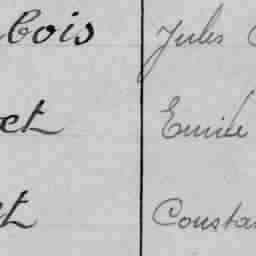 bois Jules
et Emile
et Consta